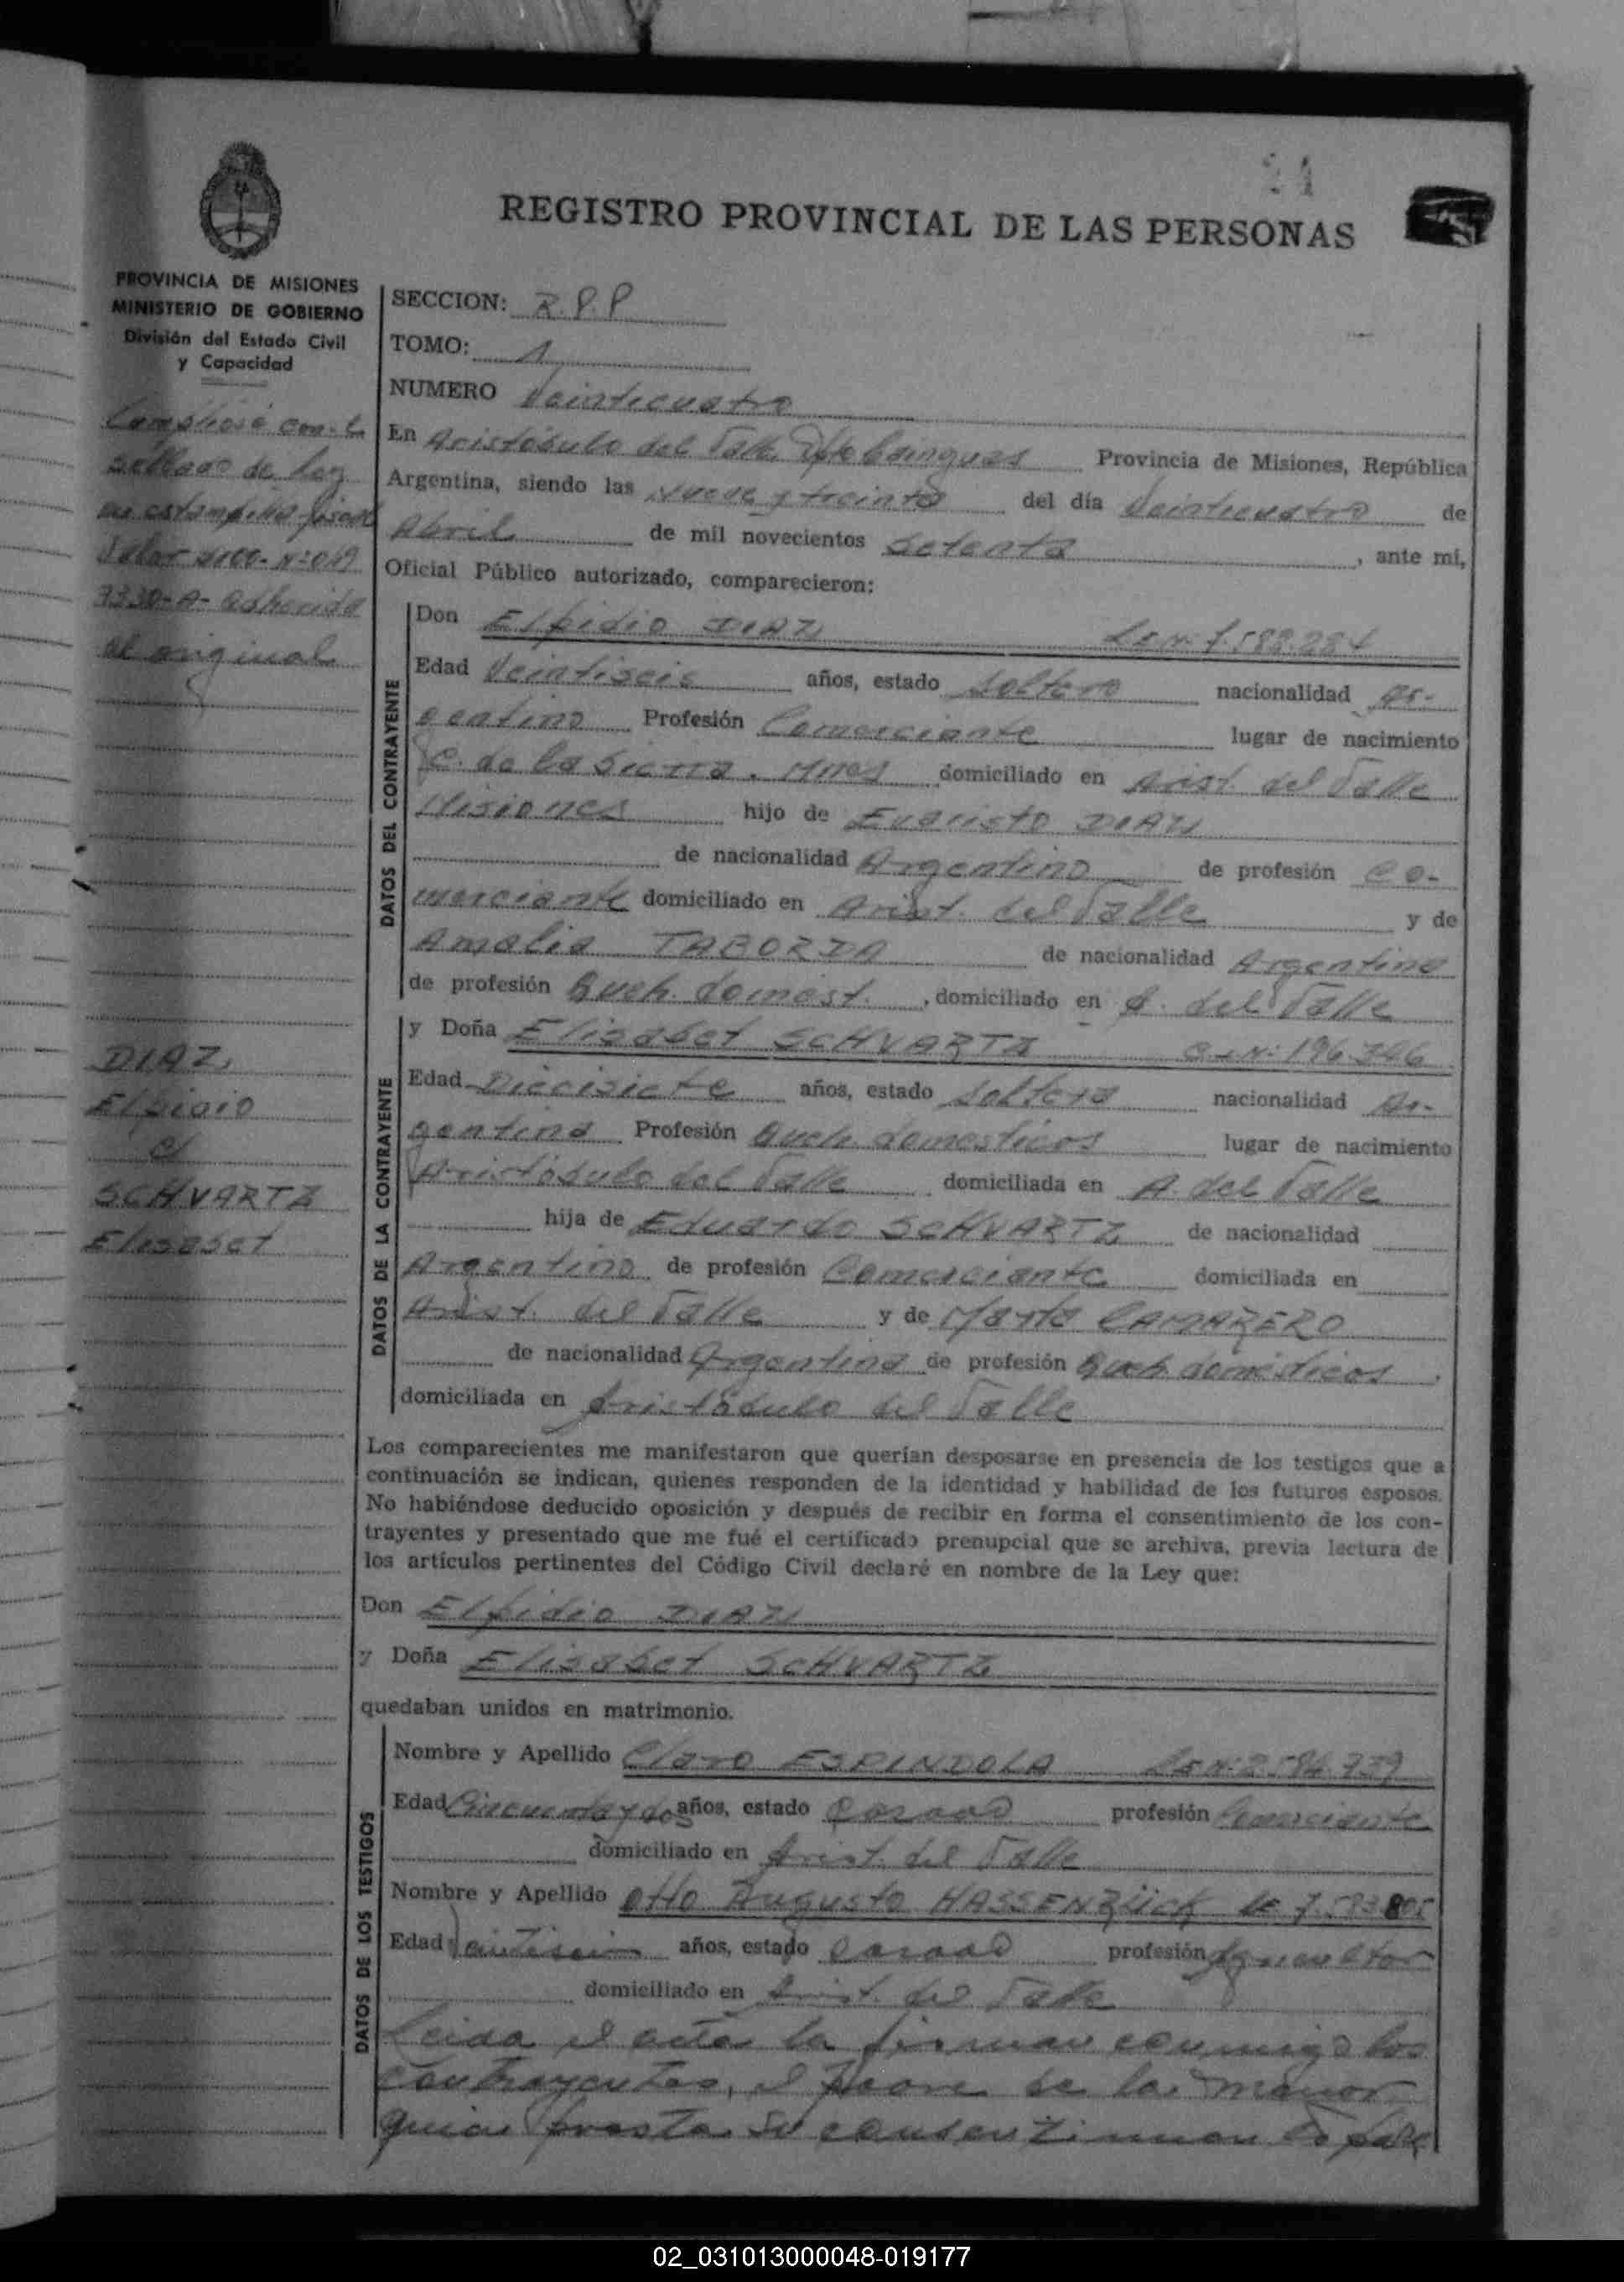 24
REGISTRO PROVINCIAL DE LAS PERSONAS
PROVINCIA DE MISIONES
MINISTERIO DE GOBIERNO
División del Estado Civil
y Capacidad
Cumpliose con el
sellado de ley
en estampilla fiscal
Valor
al original
DIAZ,
Elpidio
c/
SCHVARTZ
Elisabet
SECCION: R.P.P
TOMO: 1
NUMERO Veinticuatro
En Aristóbulo del Valle Dpto Cainguas Provincia de Misiones, República
Argentina, siendo las nueve y treinta del día Veinticuatro de
Abril de mil novecientos Setenta, ante mí,
Oficial Público autorizado, comparecieron:
DATOS DEL CONTRAYENTE
Don Elpidio DIAZ
Edad Veintiseis años, estado soltero nacionalidad Ar-
gentino Profesión Comerciante lugar de nacimiento
C. de la Sierra. Mnes domiciliado en Arist. del Valle
Misiones hijo de Evaristo DIAZ
de nacionalidad Argentino de profesión Co-
merciante domiciliado en Arist. del Valle y de
Amalia TABORDA de nacionalidad Argentina
de profesión Queh. domest., domiciliado en A. del Valle
DATOS DE LA CONTRAYENTE
y Doña Elisabet SCHVARTZ
Edad Diecisiete años, estado soltera nacionalidad Ar-
gentina Profesión Queh domesticos lugar de nacimiento
Aristóbulo del Valle domiciliada en A. del Valle
hija de Eduardo SCHVARTZ de nacionalidad
Argentino de profesión Comerciante domiciliada en
Arist. del Valle y de Marta CAMARERO
de nacionalidad Argentina de profesión Queh domésticos
domiciliada en Aristóbulo del Valle
Los comparecientes me manifestaron que querían desposarse en presencia de los testigos que a
continuación se indican, quienes responden de la identidad y habilidad de los futuros esposos.
No habiéndose deducido oposición y después de recibir en forma el consentimiento de los con-
trayentes y presentado que me fué el certificado prenupcial que se archiva, previa lectura de
los artículos pertinentes del Código Civil declaré en nombre de la Ley que:
Don Elpidio DIAZ
y Doña Elisabet SCHVARTZ
quedaban unidos en matrimonio.
DATOS DE LOS TESTIGOS
Nombre y Apellido Claro ESPINDOLA
Edad Cincuenta y dos años, estado casado profesión Comerciante
domiciliado en Arist. del Valle
Nombre y Apellido Otto Augusto HASSENRÜCK
Edad Veintiseis años, estado casado profesión Agricultor
domiciliado en Arist. del Valle
Leida el acta la firman conmigo los
contrayentes, el padre de la menor
quien presta su consentimiento para
02_031013000048-019177